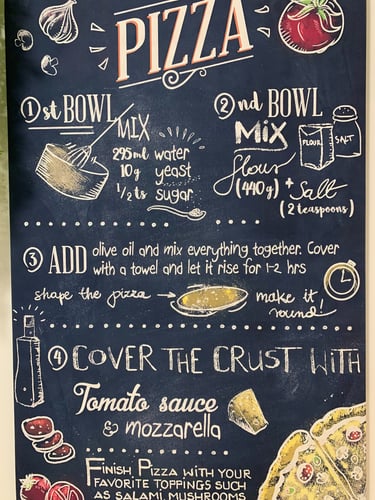 PIZZA
1st BOWL
MIX
295ml water
10g yeast
1/2 ts sugar
2nd BOWL
MiX
FLOUR
SALT
flour
(440g) + Salt
(2 teaspoons)
3 ADD olive oil and mix everything together. Cover
with a towel and let it rise for 1-2 hrs
shape the pizza → make it
round!
4 COVER THE CRUST WITH
Tomato sauce
& mozzarella
FINISH PIZZA WITH YOUR
FAVORITE TOPPINGS SUCH
AS SALAMI, MUSHROOMS